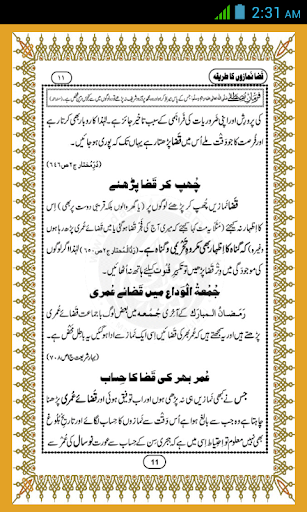 2:31 AM
قضا نمازوں کا طریقہ
۱۱
کی پرورش اور اپنی ضروریات کی فراہمی کے سبب تاخیر جائز ہے۔ لہٰذا کاروبار بھی کرتا رہے
اور فرصت کا جو وقت ملے اُس میں قضا پڑھتا رہے یہاں تک کہ پوری ہو جائیں۔
(دُرِّمُختار ج۲ ص۶۴۶)
چُھپ کر قضا پڑھئے
قضا نمازیں چھپ کر پڑھئے لوگوں پر (یا گھر والوں بلکہ قریبی دوست پر بھی) اس
کا اظہار نہ کیجئے (مثلاً یہ مت کہا کیجئے کہ میری آج کی فجر قضا ہوگئی یا میں قضائے عمری پڑھ رہا ہوں
وغیرہ) کہ گناہ کا اظہار بھی مکروہِ تحریمی و گناہ ہے۔ (رَدُّالْمُحتار ج۲ ص۶۵۰) لہٰذا اگر لوگوں
کی موجودگی میں وتر قضا پڑھیں تو تکبیرِ قنوت کیلئے ہاتھ نہ اٹھائیں۔
جُمُعَۃُ الْوَداع میں قضائے عُمری
رَمَضانُ المبارَک کے آخری جُمُعہ میں بعض لوگ باجماعت قضائے عمری
پڑھتے ہیں اور یہ سمجھتے ہیں کہ عمر بھر کی قضائیں اسی ایک نماز سے ادا ہوگئیں یہ باطل محض ہے۔
(بہارِ شریعت ج۱ ص۷۰۸)
عُمر بھر کی قضا کا حِساب
جس نے کبھی نمازیں ہی نہ پڑھی ہوں اور اب توفیق ہوئی اور قضائے عمری پڑھنا
چاہتا ہے وہ جب سے بالغ ہوا ہے اُس وقت سے نمازوں کا حساب لگائے اور تاریخِ بلوغ
بھی نہیں معلوم تو احتیاط اسی میں ہے کہ ہجری سن کے حساب سے عورت نو سال کی عُمر سے
11